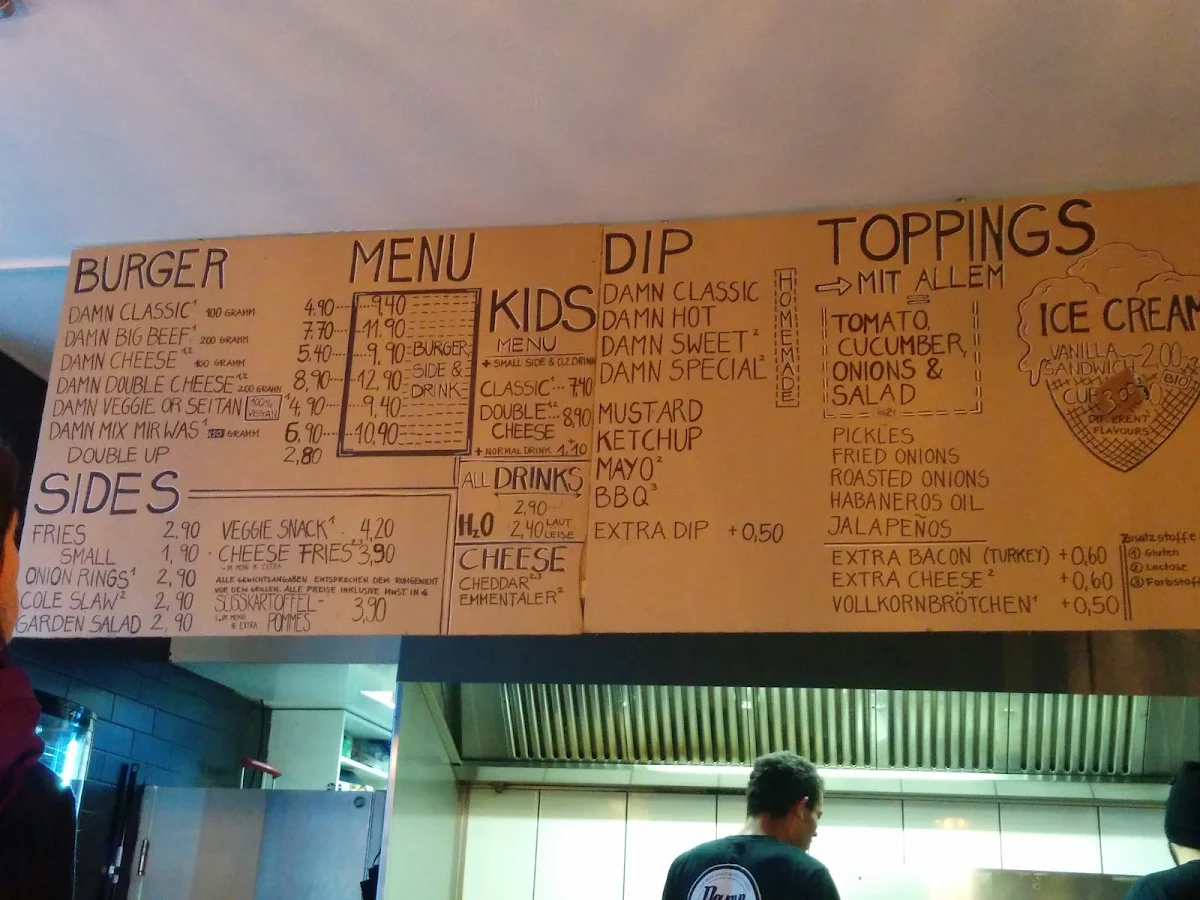 BURGER MENU
DAMN CLASSIC¹ 100 GRAMM 4.90 9,40
DAMN BIG BEEF¹ 200 GRAMM 7.70 11.90
DAMN CHEESE¹·² 100 GRAMM 5,40 9,90 BURGER,
DAMN DOUBLE CHEESE¹·² 200 GRAMM 8,90 12.90 SIDE &
DAMN VEGGIE OR SEITAN 100% VEGAN ¹ 4,90 9,40 DRINK
DAMN MIX MIR WAS¹ 150 GRAMM 6,90 10,40
DOUBLE UP 2,80
SIDES
FRIES 2,90
SMALL 1,90
ONION RINGS¹ 2,90
COLE SLAW² 2,90
GARDEN SALAD 2,90
VEGGIE SNACK¹ 4,20
CHEESE FRIES²·³ 3,90
IM MENU 1€ EXTRA
ALLE GEWICHTSANGABEN ENTSPRECHEN DEM ROHGEWICHT
VOR DEM GRILLEN. ALLE PREISE INKLUSIVE MWST. IN €
SÜSSKARTOFFEL-
POMMES 3,90
IM MENU
1€ EXTRA
KIDS
MENU
+ SMALL SIDE & 0,2 DRINK
CLASSIC¹ 7,40
DOUBLE¹·² 8,90
CHEESE
+ NORMAL DRINK 1,10
ALL DRINKS
2,90
H₂O 2,40 LAUT
LEISE
CHEESE
CHEDDAR²·³
EMMENTALER²
DIP
DAMN CLASSIC
DAMN HOT
DAMN SWEET²
DAMN SPECIAL²
HOMEMADE
MUSTARD
KETCHUP
MAYO²
BBQ³
EXTRA DIP +0,50
TOPPINGS
⇨ MIT ALLEM
TOMATO,
CUCUMBER,
ONIONS &
SALAD
PICKLES
FRIED ONIONS
ROASTED ONIONS
HABANEROS OIL
JALAPEÑOS
EXTRA BACON (TURKEY) +0,60
EXTRA CHEESE² +0,60
VOLLKORNBRÖTCHEN¹ +0,50
ICE CREAM
VANILLA
SANDWICH 2,00
CUP 3,00
BIO
DIFFERENT
FLAVOURS
Zusatzstoffe
① Gluten
② Lactose
③ Farbstoff
Damn